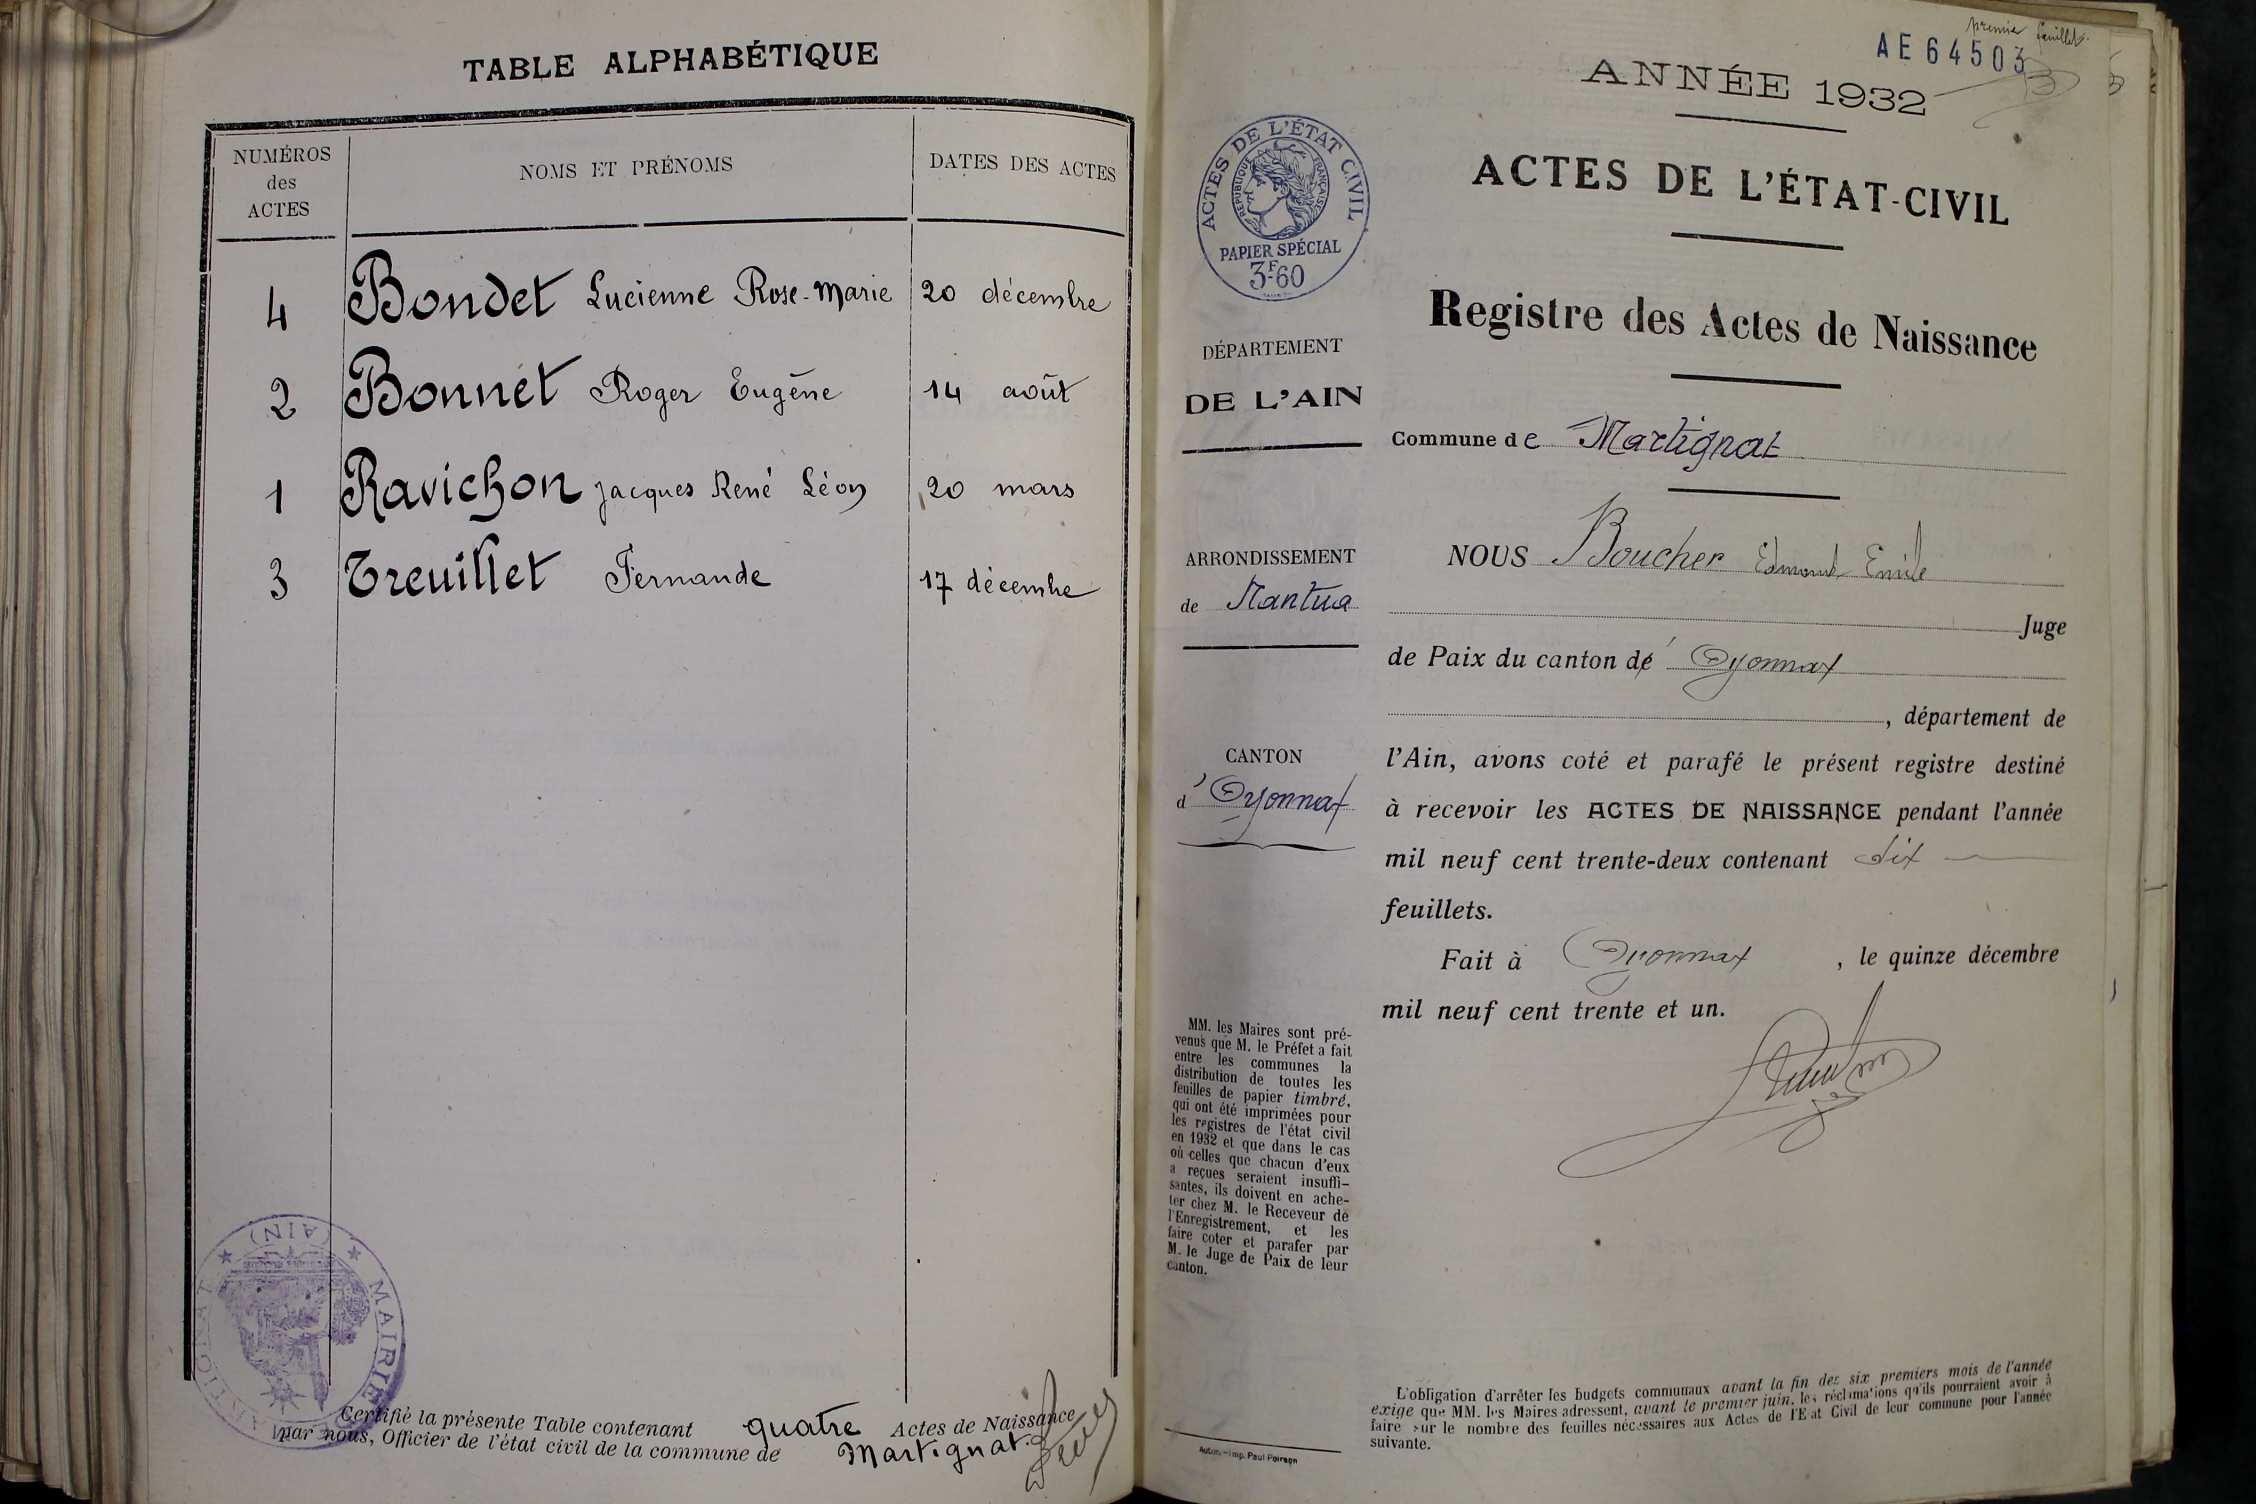 TABLE ALPHABÉTIQUE
NUMÉROS
des
ACTES
NOMS ET PRÉNOMS
DATES DES ACTES
4 Bondet Lucienne Rose-Marie 20 décembre
2 Bonnet Roger Eugène 14 août
1 Ravichon Jacques René Léon 20 mars
3 Treuillet Fernande 17 décembre
MAIRIE MARTIGNAT (AIN)
Certifié la présente Table contenant quatre Actes de Naissance
par nous, Officier de l'état civil de la commune de Martignat.
premier feuillet.
AE 64503
ANNÉE 1932
ACTES DE L'ÉTAT CIVIL
RÉPUBLIQUE FRANÇAISE
PAPIER SPÉCIAL
3F60
ACTES DE L'ÉTAT-CIVIL
Registre des Actes de Naissance
DÉPARTEMENT
DE L'AIN
Commune de Martignat
ARRONDISSEMENT
de Nantua
CANTON
d'Oyonnax
NOUS Boucher Edmond Emile
Juge
de Paix du canton d' Oyonnax
, département de
l'Ain, avons coté et parafé le présent registre destiné
à recevoir les ACTES DE NAISSANCE pendant l'année
mil neuf cent trente-deux contenant dix
feuillets.
Fait à Oyonnax , le quinze décembre
mil neuf cent trente et un.
MM. les Maires sont pré-
venus que M. le Préfet a fait
entre les communes la
distribution de toutes les
feuilles de papier timbré,
qui ont été imprimées pour
les registres de l'état civil
en 1932 et que dans le cas
où celles que chacun d'eux
a reçues seraient insuffi-
santes, ils doivent en ache-
ter chez M. le Receveur de
l'Enregistrement, et les
faire coter et parafer par
M. le Juge de Paix de leur
canton.
Autun.—Imp. Paul Poirson
L'obligation d'arrêter les budgets communaux avant la fin des six premiers mois de l'année
exige que MM. les Maires adressent, avant le premier juin, les réclamations qu'ils pourraient avoir à
faire sur le nombre des feuilles nécessaires aux Actes de l'Etat Civil de leur commune pour l'année
suivante.